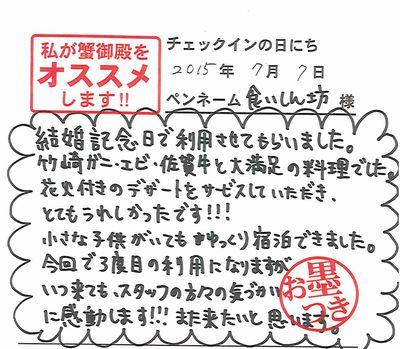 私が蟹御殿を
オススメ
します!!
チェックインの日にち
2015年 7月 7日
ペンネーム 食いしん坊 様
結婚記念日で利用させてもらいました。
竹崎ガニ・エビ・佐賀牛と大満足の料理でした。
花火付きのデザートをサービスしていただき、
とてもうれしかったです!!!
小さな子供がいてもゆっくり宿泊できました。
今回で3度目の利用になりますが
いつ来ても、スタッフの方々の気づかい
に感動します!!! また来たいと思います。
お墨つき